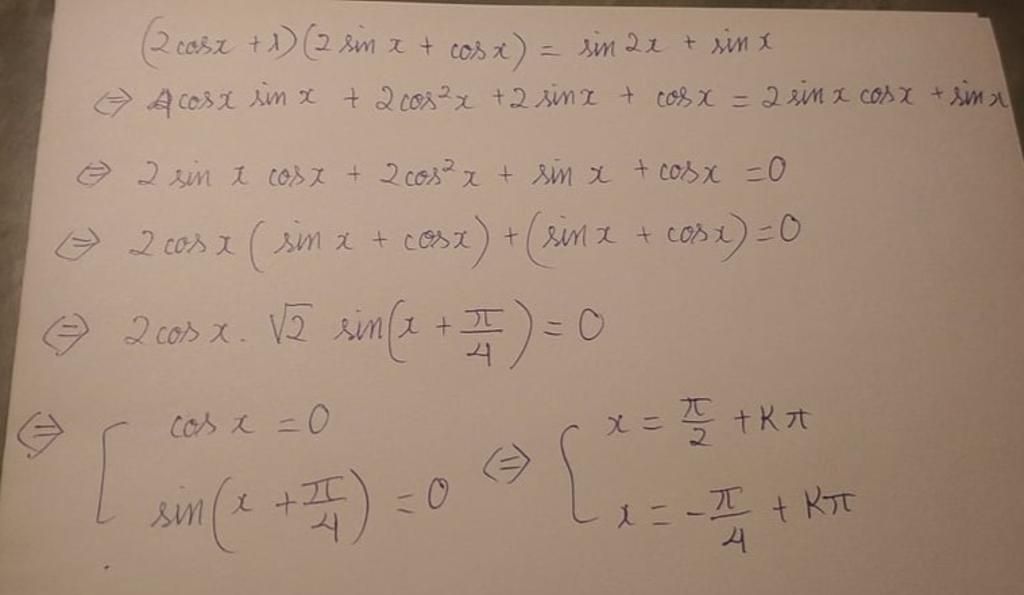 (2cosx + 1)(2 sin x + cos x) = sin 2x + sin x
⇔ 4cosx sin x + 2cos²x + 2 sinx + cosx = 2 sinx cosx + sinx
⇔ 2 sin x cosx + 2cos²x + sin x + cosx = 0
⇔ 2cosx (sinx + cosx) + (sinx + cosx) = 0
⇔ 2cosx. √2 sin(x + π/4) = 0
⇔ [ cosx = 0 ⇔ [ x = π/2 + Kπ
sin(x + π/4) = 0 x = -π/4 + Kπ